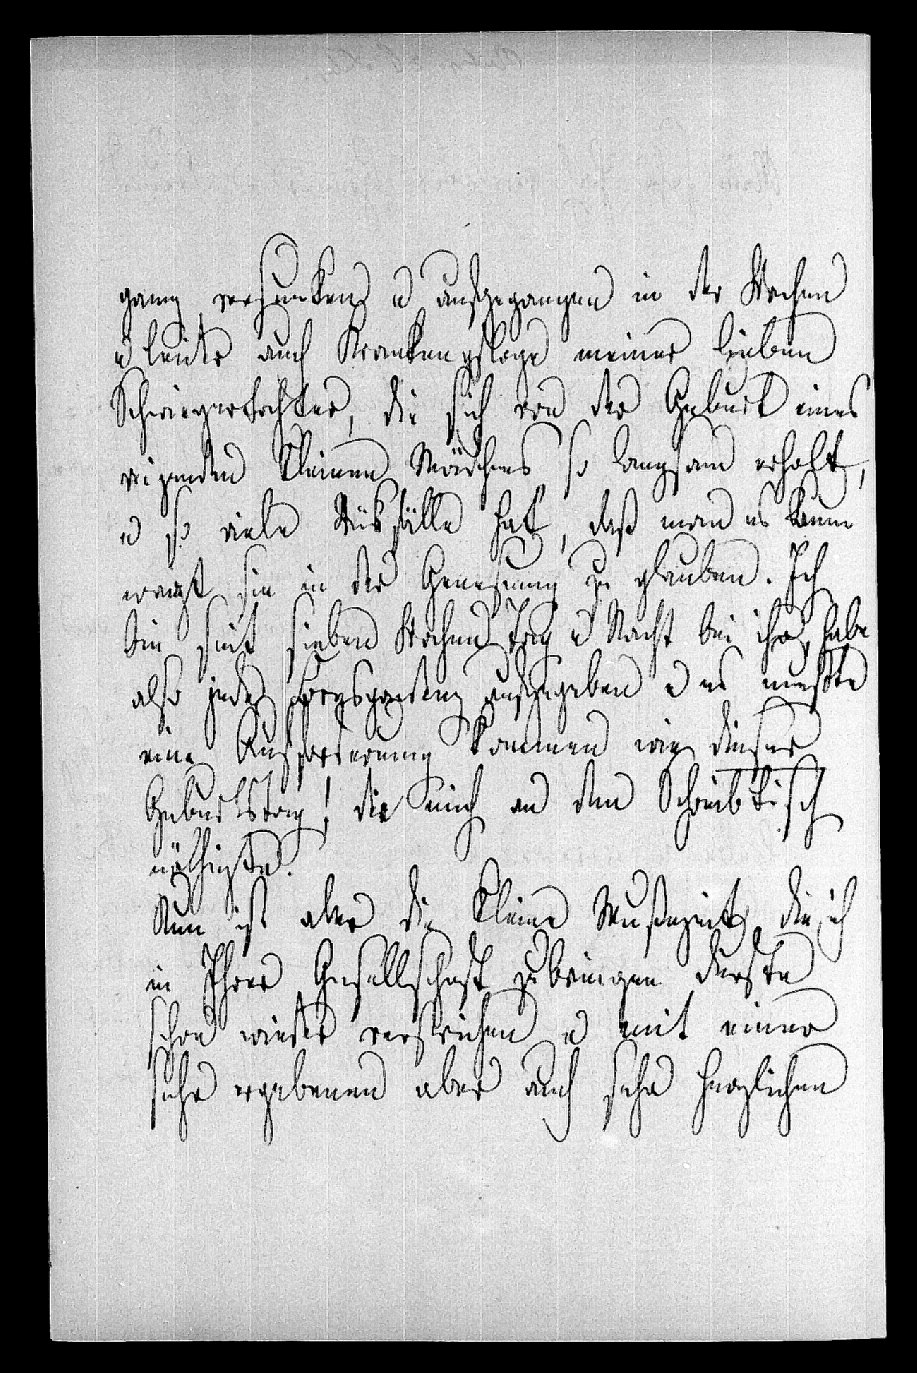 ganz versunken u aufgegangen in der Wochen
u leider auch Krankenpflege meiner lieben
Schwiegertochter, die sich von der Geburt eines
reizenden kleinen Mädchens so langsam erholt,
u so viele Rückfälle hat, daß man es kaum
wagt sie in der Genesung zu glauben. Ich
bin seit sieben Wochen Tag u Nacht bei ihr, habe
also jede Correspondenz aufgegeben u es mußte
eine Aufforderung kommen wie dieser
Geburtstag! die mich an den Schreibtisch
nöthigte.
Nun ist aber die kleine Mußezeit, die ich
in Ihrer Gesellschaft zubringen durfte
schon wieder verstrichen u mit einem
sehr ergebenen aber auch sehr herzlichen